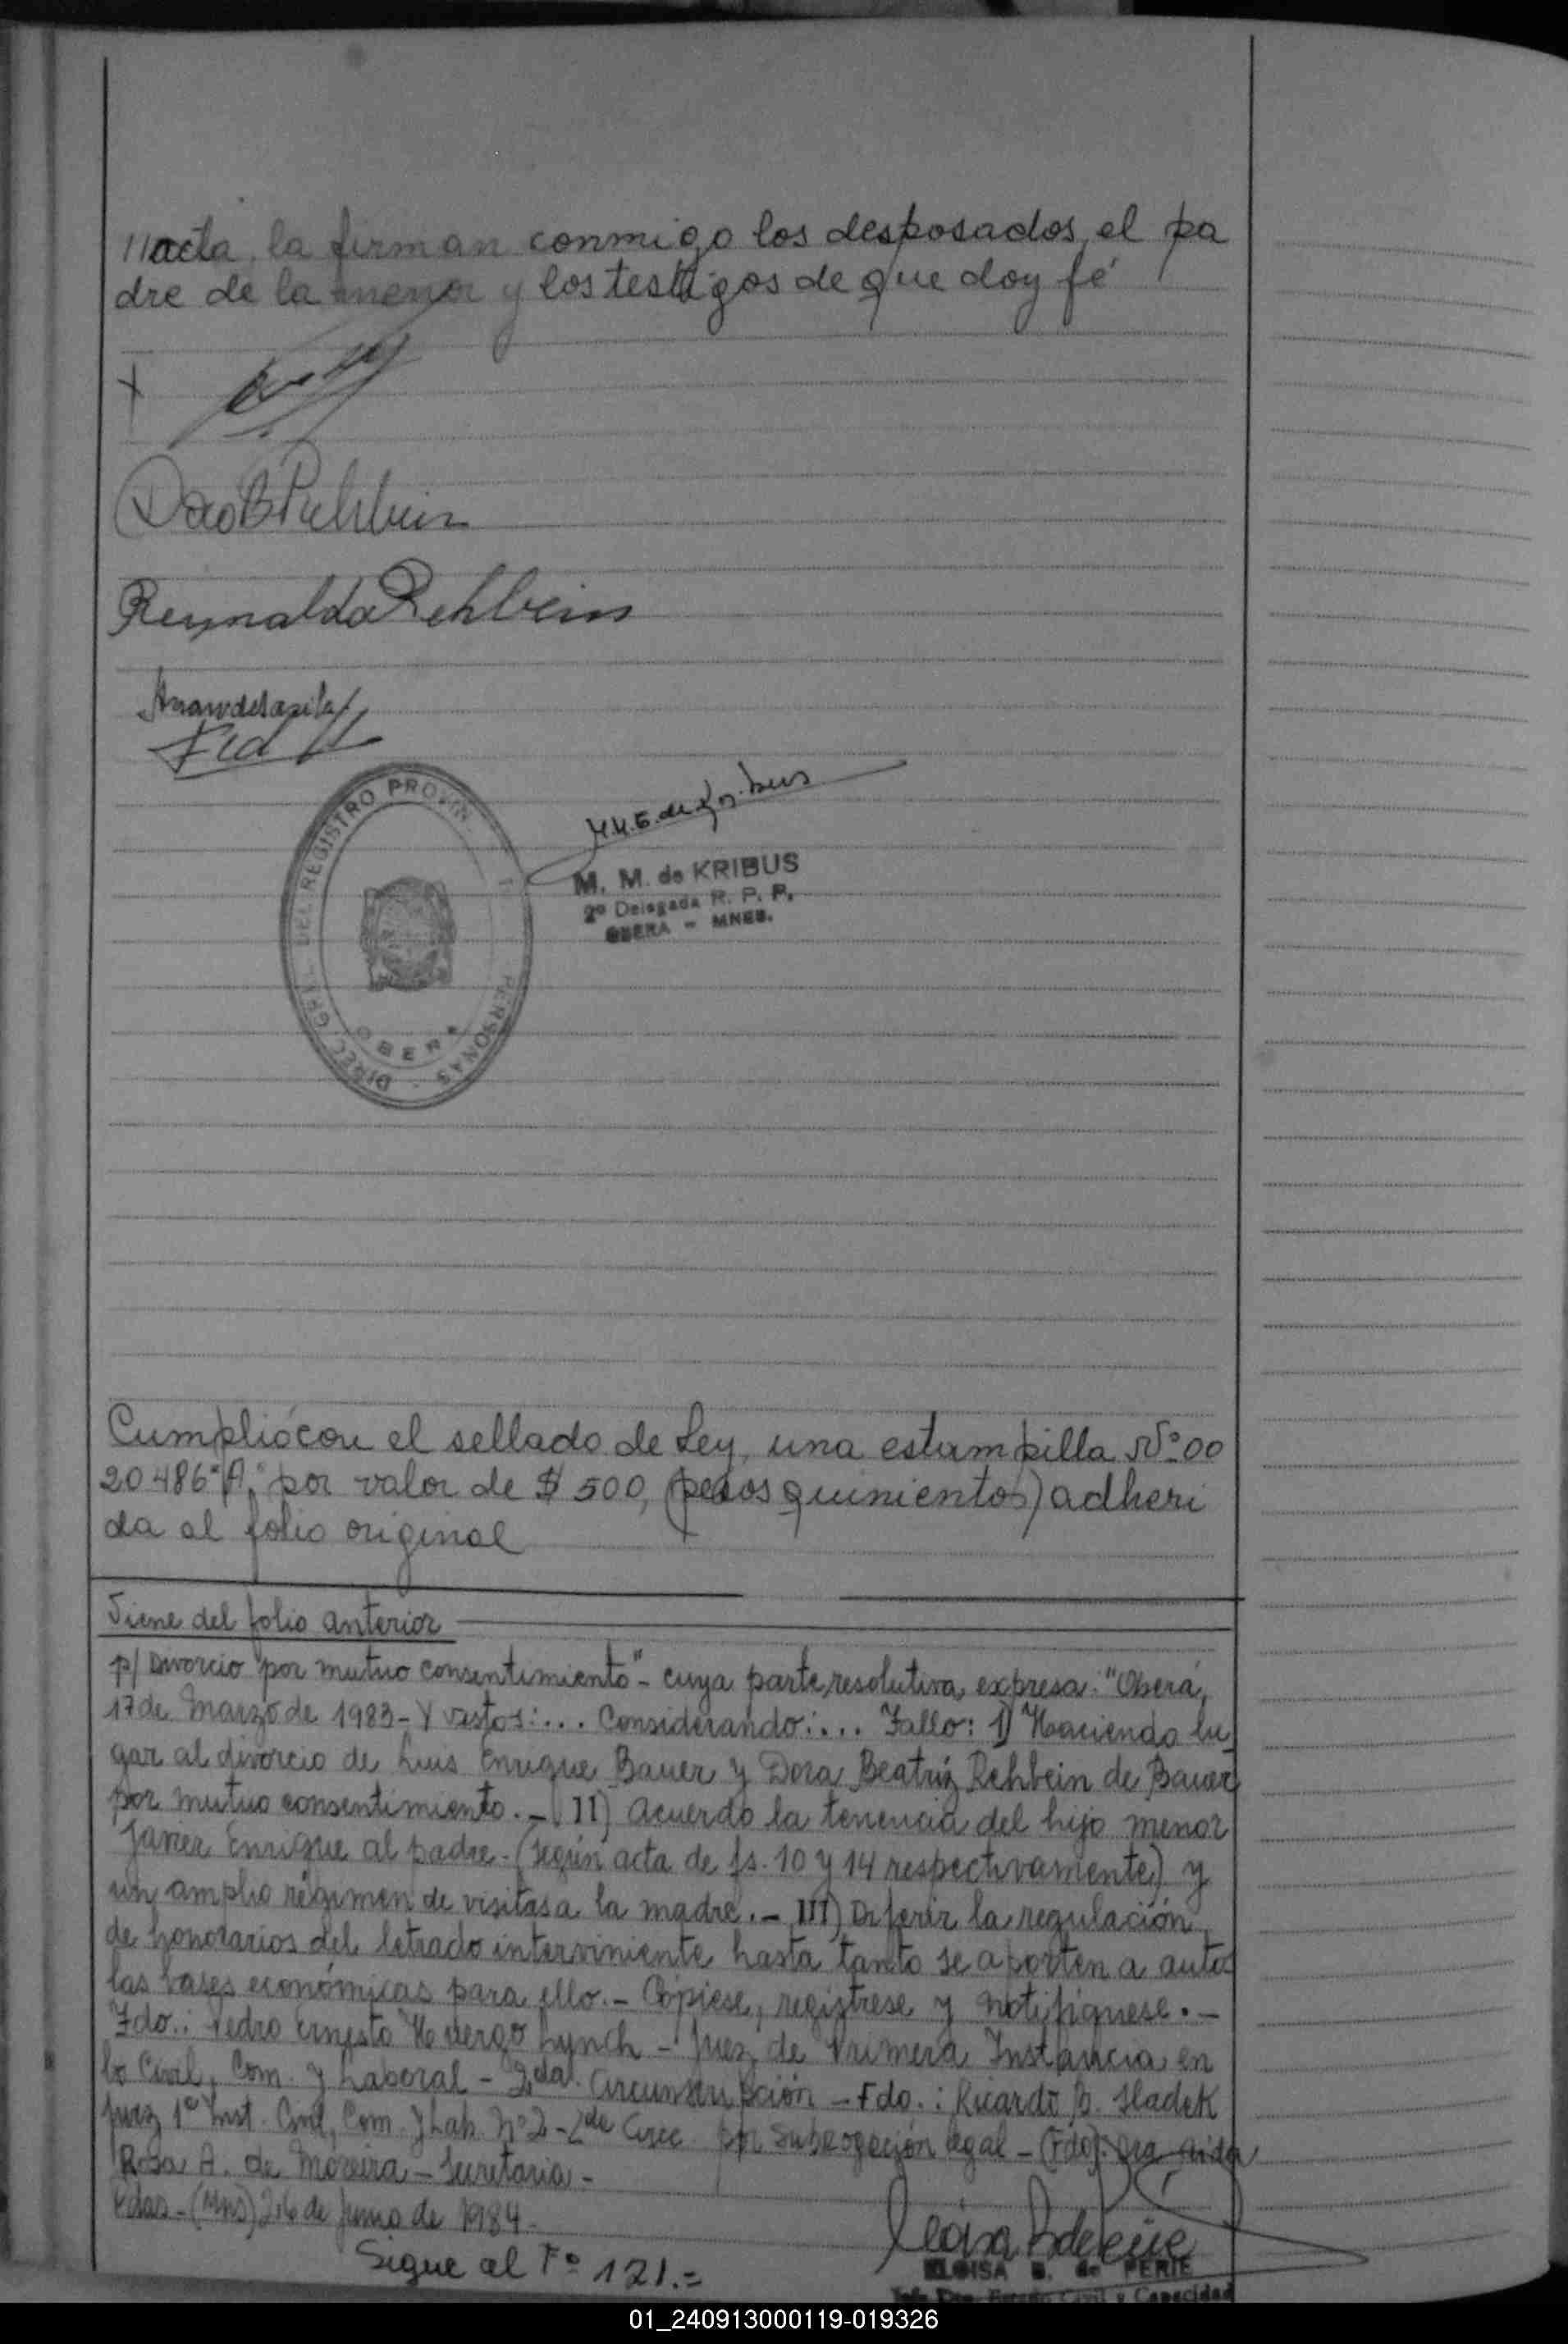 //acta, la firman conmigo los desposados, el pa
dre de la menor y los testigos de que doy fé
Reynaldo Rehbein
DIREC. GRL. DEL REGISTRO PROVIN. PERSONAS
OBERA
M. M. de KRIBUS
2º Delegada R. P. P.
OBERA - MNES.
Cumplió con el sellado de Ley, una estampilla Nº 00
20486"A" por valor de $ 500, (pesos quinientos) adheri
da al folio original
Viene del folio anterior
p/ Divorcio por mutuo consentimiento" - cuya parte resolutiva expresa: "Oberá,
17 de Marzo de 1983 - Y vistos:... Considerando:... Fallo: I) Haciendo lu
gar al divorcio de Luis Enrique Bauer y Dora Beatriz Rehbein de Bauer
por mutuo consentimiento. - II) Acuerdo la tenencia del hijo menor
Javier Enrique al padre - (según acta de fs. 10 y 14 respectivamente) y
un amplio régimen de visitas a la madre. - III) Diferir la regulación
de honorarios del letrado interviniente hasta tanto se aporten a autos
las bases económicas para ello. - Cópiese, regístrese y notifíquese. -
Fdo.: Pedro Ernesto Huergo Lynch - Juez de Primera Instancia en
lo Civil, Com. y Laboral - 2da. Circunscripción - Fdo.: Ricardo B. Sladek
Juez 1º Inst. Civil, Com. y Lab. Nº 2 - 2da Circ. por Subrogación legal - (Fdo): Dra. Aida
Rosa A. de Moreira - Secretaria -
Pdas - (Mns) 26 de Junio de 1984 -
ELOISA B. de PERIE
Jefe Dpo. Estado Civil y Capacidad
Sigue al Fº 121.=
01_240913000119-019326